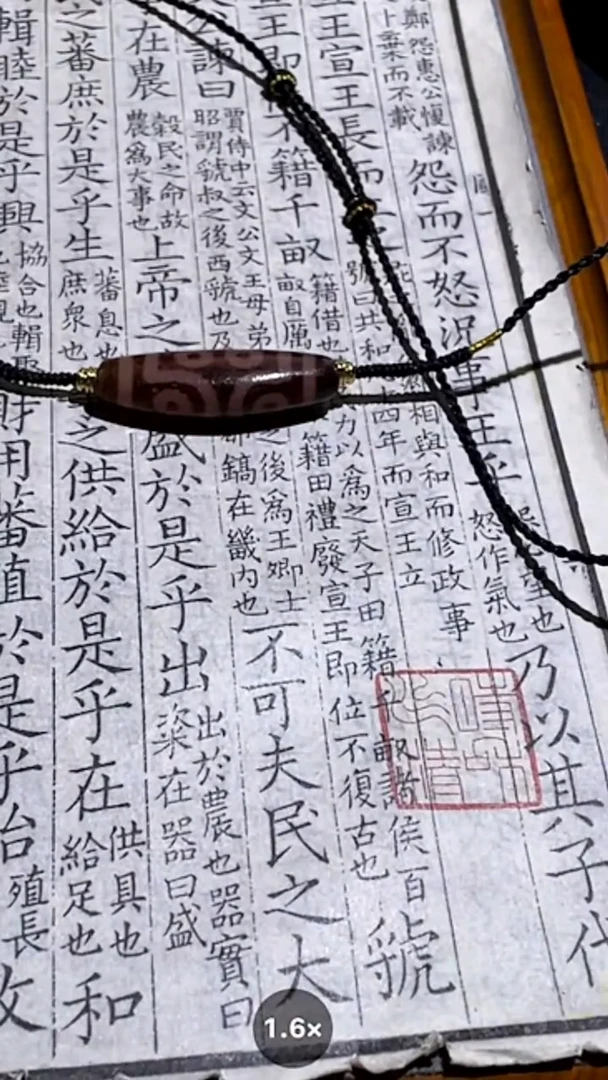 鄭怨惠公愎諫
卜棄而不載
怨而不怒況事王乎
望也
怒作氣也
乃以其子代
王宣王長而
相與和而修政事
號曰共和十四年而宣王立
王即不籍千畝
籍借也
力以為之天子田籍千畝諸侯百
畝自厲
籍田禮廢宣王即位不復古也
虢
公諫曰
賈侍中云文公文王母弟
之後為王卿士
昭謂虢叔之後西虢也乃
都鎬在畿內也
不可夫民之大
在農
穀民之命故
農為大事也
上帝之
盛於是乎出
出於農也器實曰
粢在器曰盛
之蕃庶於是乎生
蕃息也
庶眾也
之供給於是乎在
供具也
給足也
和
輯睦於是乎興
協合也輯聚
財用蕃殖於是乎始
殖長